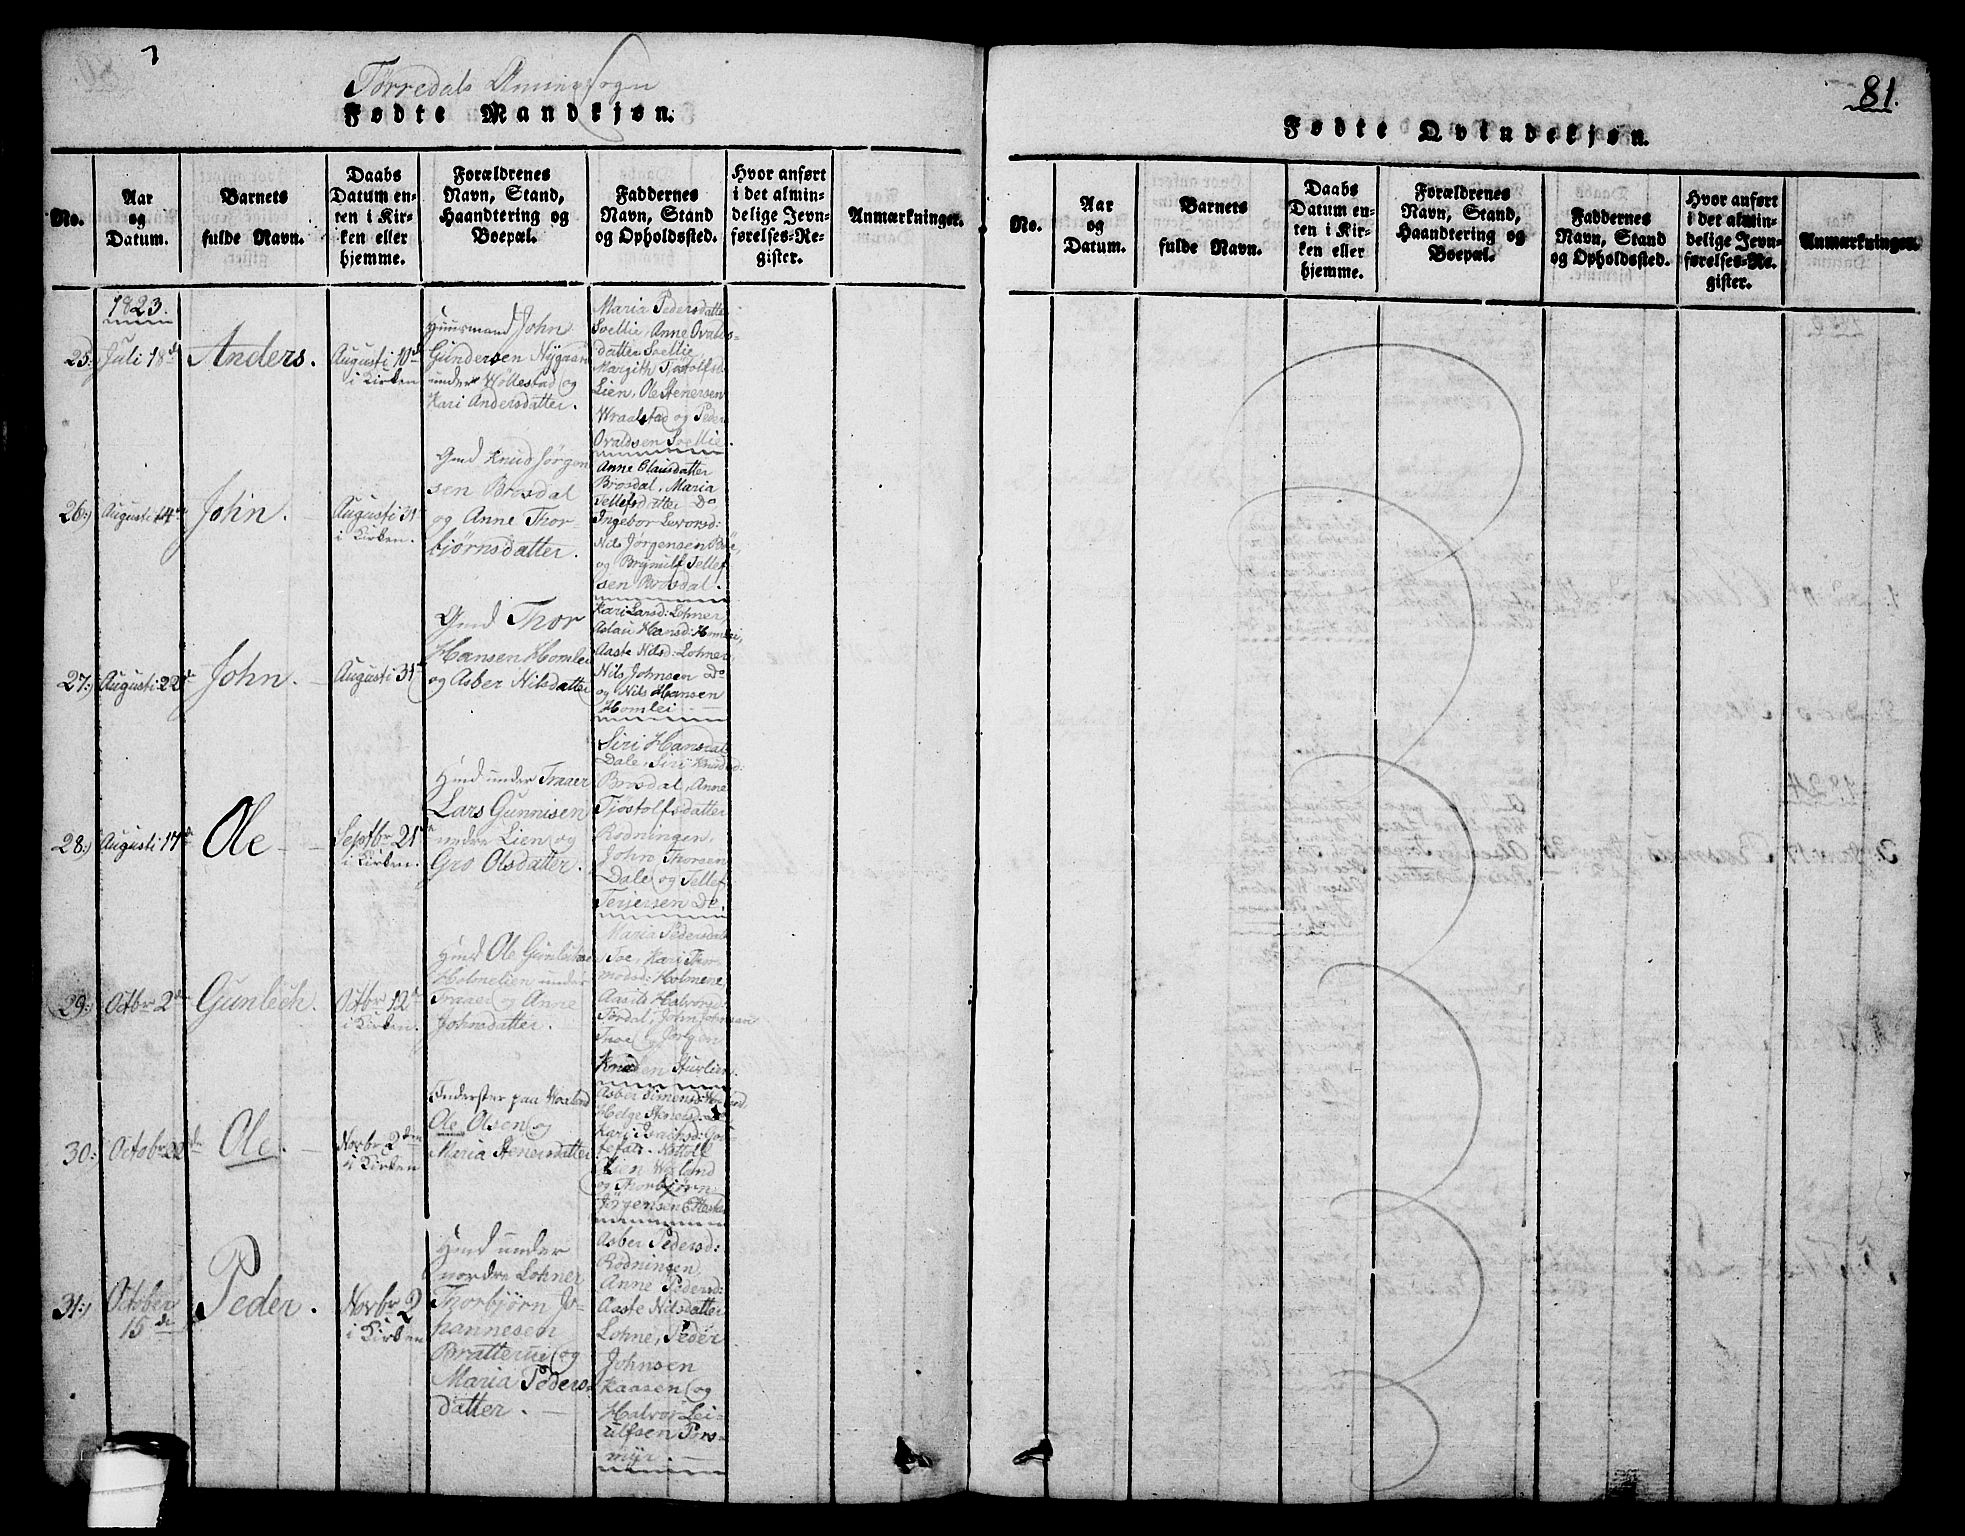 Tørredals Annexsogn
Fødte Mandkjøn.
No.
Aar
og
Datum.
Barnets
fulde Navn.
Daabs
Datum en-
ten i Kir-
ken eller
hjemme.
Forældrenes
Navn, Stand,
Haandtering og
Boepæl.
Faddernes
Navn, Stand
og Opholdssted.
Hvor anført
i det almin-
delige Jevn-
førelses-Re-
gister.
Anmærkninger.
1823.
25:)
Juli 18de
Anders.
Augusti 10d
i Kirken
Huusmand John
Gundersen Nygaard
under Wøllestad og
Kari Andersdatter.
Maria Pedersdatter
Soellie, Anne Ovalds-
datter Soellie,
Margith Tjostolfsd
Lien, Ole Stenersen
Wraalstad og Peder
Ovaldsen Soellie.
26:)
Augusti 14de
John.
Augusti 31
i Kirken.
Gmd Knud Jørgen
sen Brosdal
og Anne Thor-
bjørnsdatter.
Anne Clausdatter
Brosdal, Maria
Tellefsdatter Do
Ingebor Levorsd:
Nils Jørgensen Bøe,
og Brynulf Tellef
sen Brosdal.
27:)
Augusti 22de
John.
Augusti 31
Gmd Thor
Hansen Homlei
og Asber Nilsdatter
Kari Larsd: Lohner,
Aslau Hansd: Homlei,
Aaste Nilsd: Lohner
Nils Johnsen Do
og Nils Hansen
Homlei.
28:)
Augusti 17de
Ole
Septbr 21de
i Kirken.
Hmd under Traaer
Lars Gunnisen
nedre Lien og
Gro Olsdatter.
Siri Hansdat
Dale, Siri Knudsd:
Brosdal, Anne
Tjostolfsdatter
Rodningen,
John Thorsen
Dale og Tellef
Terjersen Do.
29:)
Octbr 2de
Gunlech.
Octbr 12te
i Kirken.
Hmd Ole Gunlechsen
Holmelien under
Traaer og Anne
Johnsdatter.
Maria Pedersdat
Toe, Kari Thor-
modsd: Holmene,
Aasild Halvorsd
Tørdal, John Johnsen
Thoe og Jørgen
Knudsen Husslien.
30:
Octobr 22de
Ole.
Novbr 2den
i Kirken
Inderster paa Woxland
Ole Olsen og
Maria Stenersdatter
Asber Simensd:
Helge Stenersd: Do
Lien Woxland
og Thorbjørn
Jørgensen
31:)
October
15de
Peder.
Novbr 2
i Kirken
Hmd under
nordre Lohner
Thorbjørn Jo-
hannesen
Bratterue og
Maria Peders-
datter.
Asber Pedersd:
Rodningen,
Anne Pedersd:
Aaste Nilsdatter
Lohne, Peder
Johnsen
Kaasen og
Halvor Lei-
ulfsen Pors-
myr.
81.
Fødte Qvindekjøn.
No.
Aar
og
Datum.
Barnets
fulde Navn.
Daabs
Datum en-
ten i Kir-
ken eller
hjemme.
Forældrenes
Navn, Stand,
Haandtering og
Boepæl.
Faddernes
Navn, Stand
og Opholdssted.
Hvor anført
i det almin-
delige Jevn-
førelses-Re-
gister.
Anmærkninger.